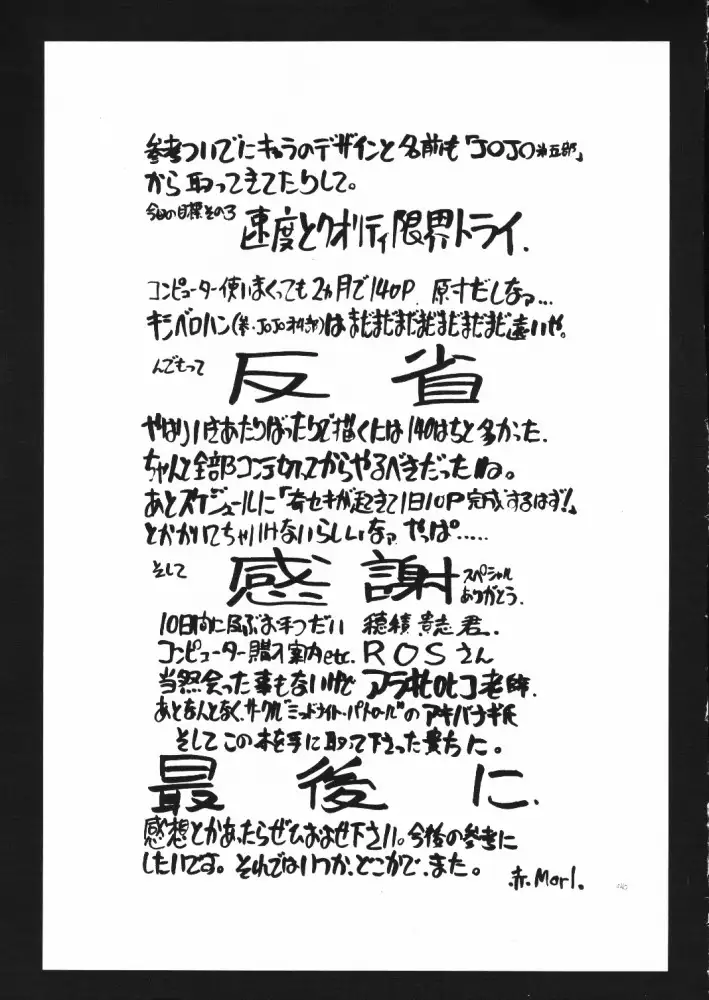 参考ついでにキャラのデザインと名前も「JOJO第五部」
から取ってきてたりして。
今回の目標その3
速度とクオリティ限界トライ.
コンピューター使いまくっても2ヵ月で140P 原寸だしなァ…
キシベロハン(参・JOJO)はまだまだまだまだまだまだまだ遠いや。
んでもって
反省
やはり行きあたりばったりで描くには140はちと多かった.
ちゃんと全部コンテ切ってからやるべきだったね。
あとスケジュールに「奇セキが起きて1日10P完成するはず!」
とか書いてちゃいけないらしいなァ やっぱ.....
そして
感謝
スペシャル
ありがとう.
10日間に及ぶお手つだい 穂積貴志君.
コンピューター購入案内etc. ROSさん
当然会った事もないけど アラキヒロヒコ老師.
あとなんとなく、サークル"ミッドナイト・パトロール"のアキバナギ氏
そしてこの本を手に取って下さった貴方に。
最後に.
感想とかあったらぜひおよせ下さい。今後の参考に
したいです。それではいつか、どこかで、また。
赤.Mor1.